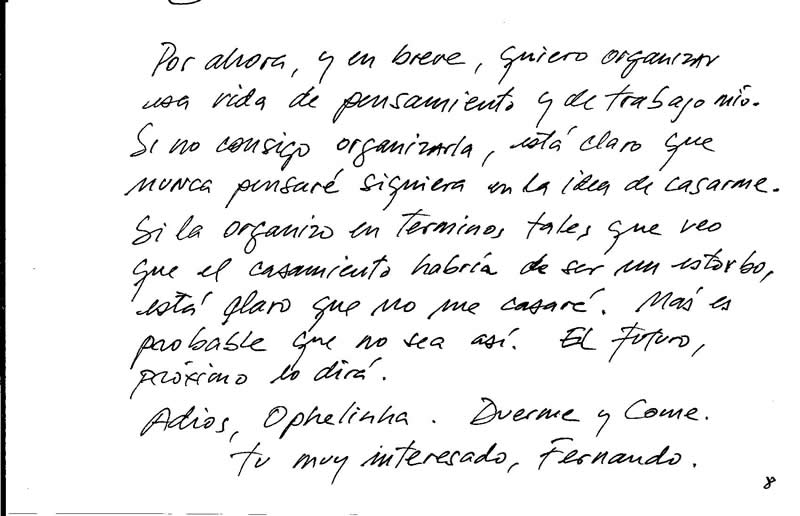 Por ahora, y en breve, quiero organizar
esa vida de pensamiento y de trabajo mío.
Si no consigo organizarla, está claro que
nunca pensaré siquiera en la idea de casarme.
Si la organizo en terminos tales que veo
que el casamiento habría de ser un estorbo,
está claro que no me casaré. Mas es
probable que no sea así. El Futuro,
próximo lo dirá.
Adios, Ophelinha. Duerme y Come.
tu muy interesado, Fernando.
8